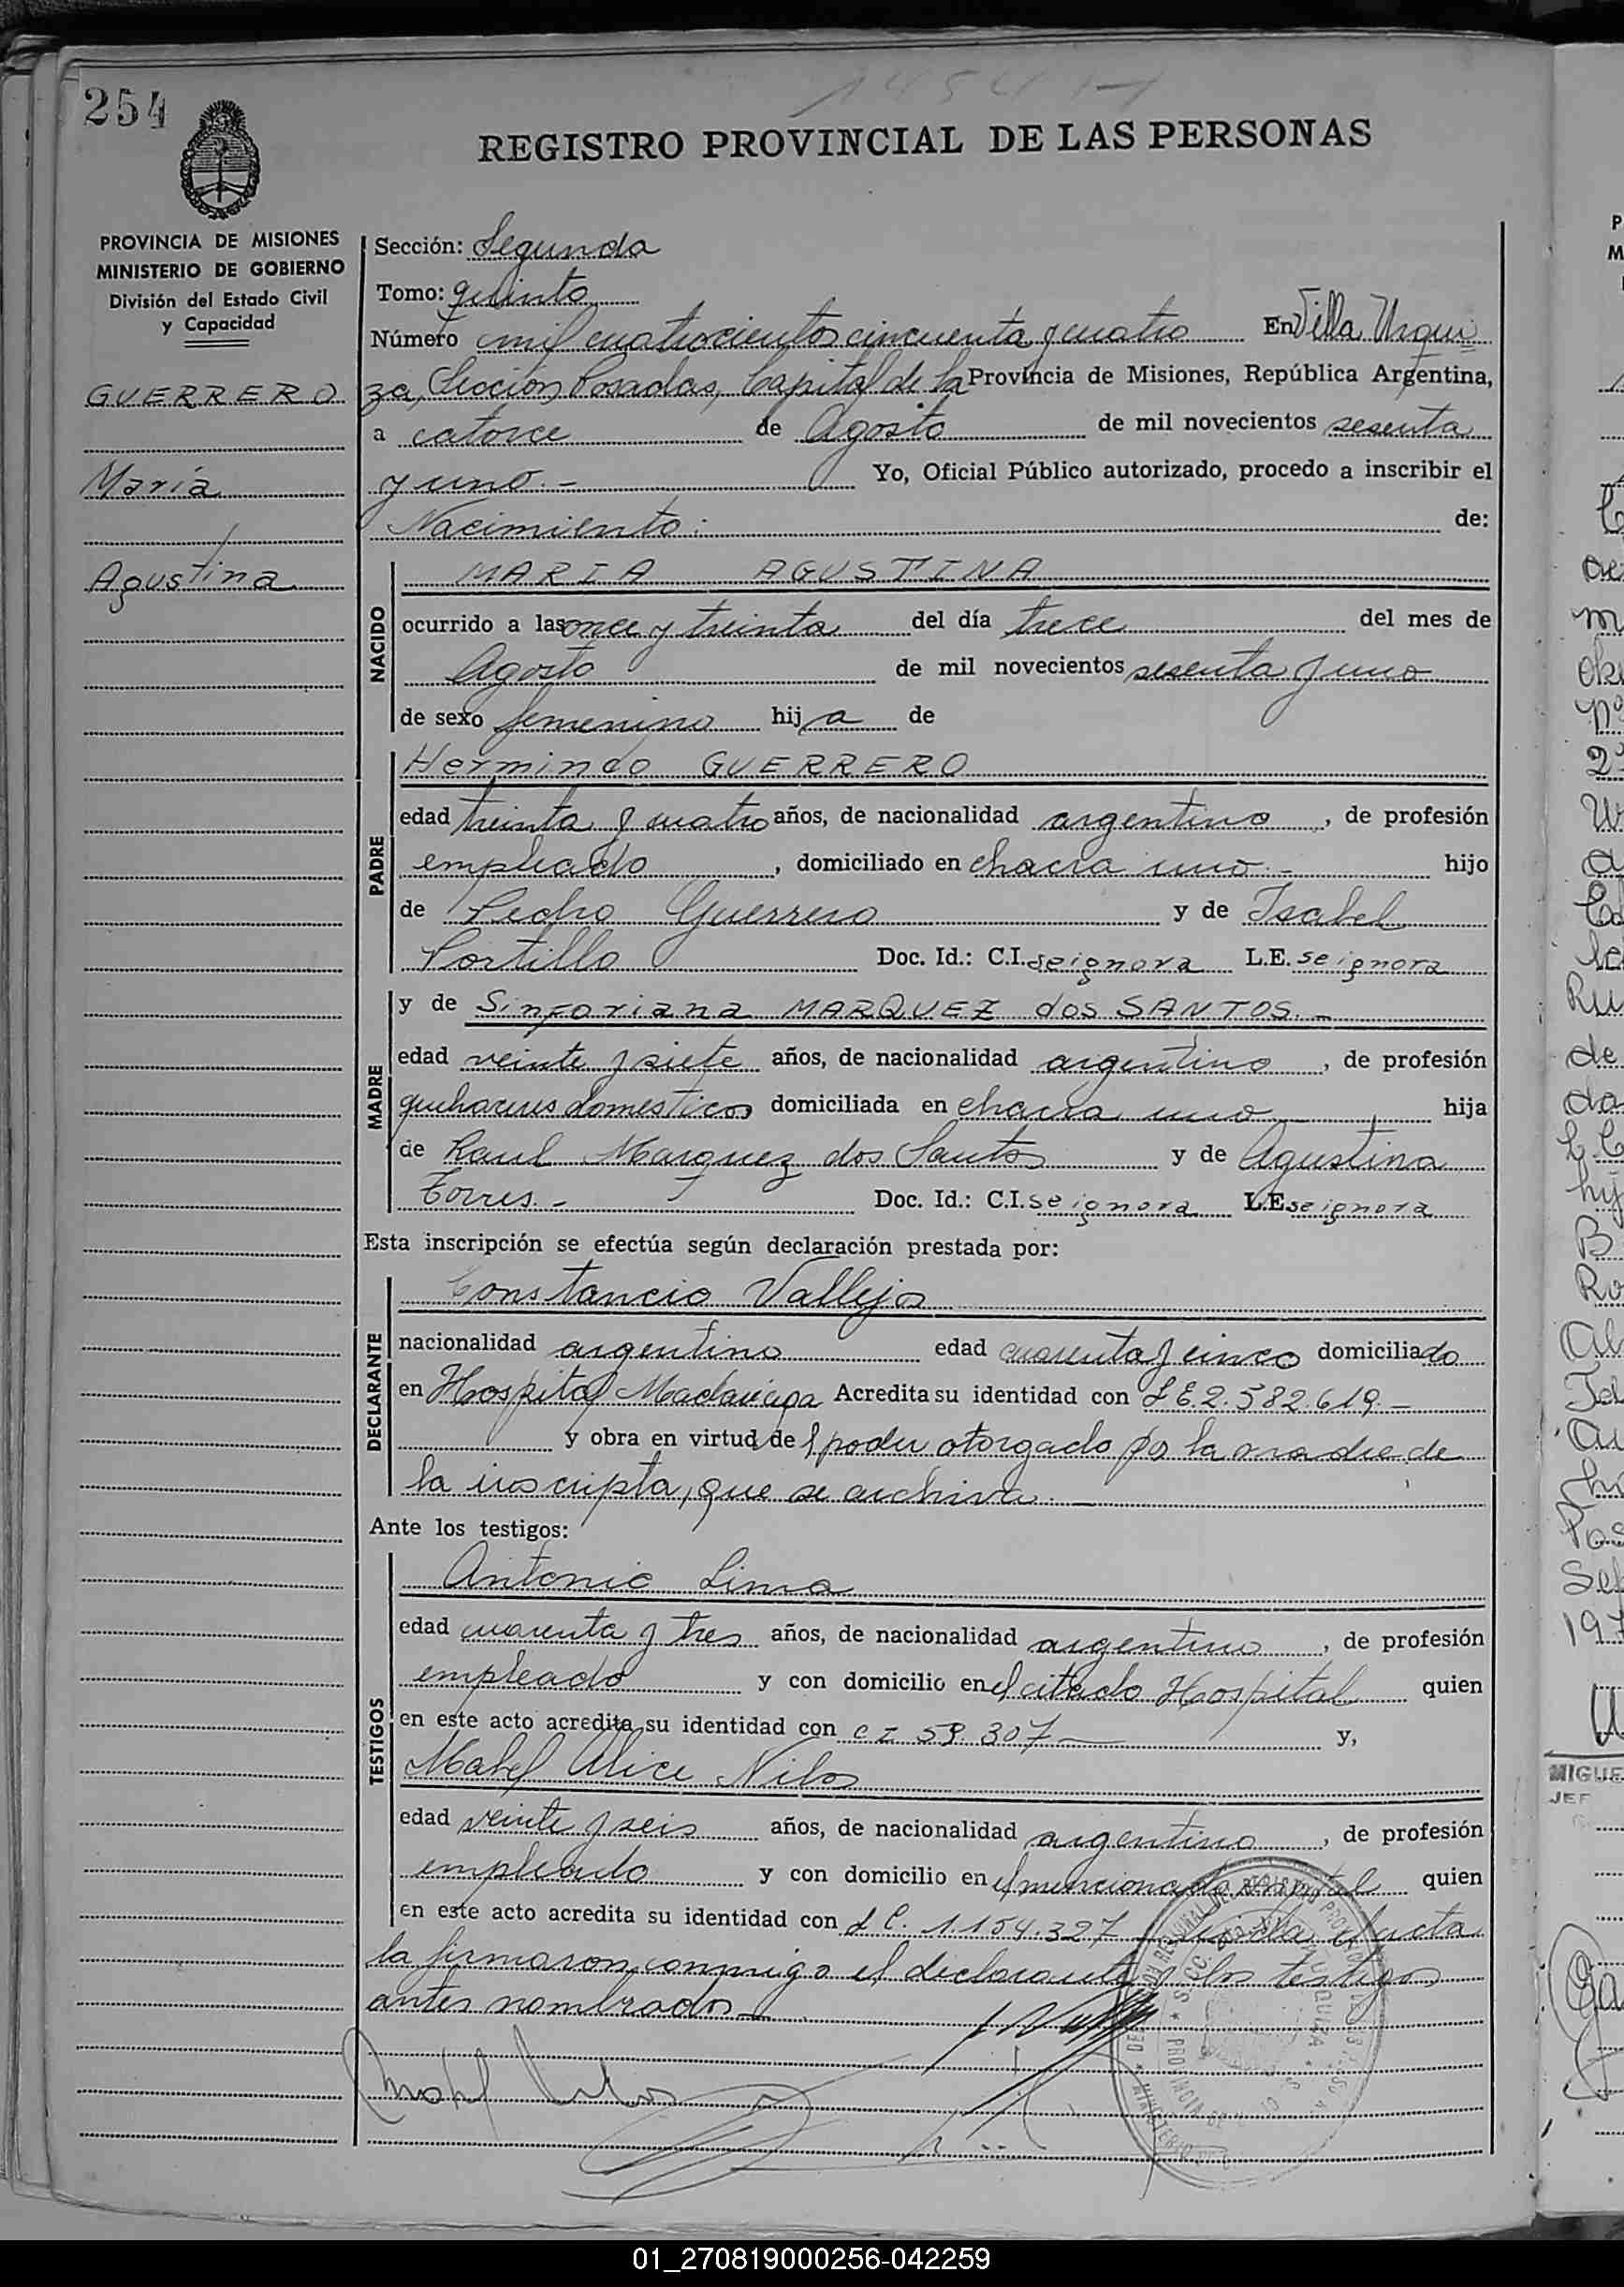 254
REGISTRO PROVINCIAL DE LAS PERSONAS
PROVINCIA DE MISIONES
MINISTERIO DE GOBIERNO
División del Estado Civil
y Capacidad
GUERRERO
María
Agustina
Sección: Segunda
Tomo: quinto
Número mil cuatrocientos cincuenta y cuatro En Villa Urqui
za, Sección Posadas, Capital de la Provincia de Misiones, República Argentina,
a catorce de Agosto de mil novecientos sesenta
y uno.- Yo, Oficial Público autorizado, procedo a inscribir el
Nacimiento: de:
NACIDO
MARIA AGUSTINA
ocurrido a las once y treinta del día trece del mes de
Agosto de mil novecientos sesenta y uno
de sexo femenino hij a de
PADRE
Hermindo GUERRERO
edad treinta y cuatro años, de nacionalidad argentino, de profesión
empleado, domiciliado en chacra uno.- hijo
de Pedro Guerrero y de Isabel
Portillo Doc. Id.: C.I. se ignora L.E. se ignora
MADRE
y de Sinforiana MARQUEZ dos SANTOS.-
edad veinte y siete años, de nacionalidad argentino, de profesión
quehaceres domesticos domiciliada en chacra uno hija
de Raul Marquez dos Santos y de Agustina
Torres.- Doc. Id.: C.I. se ignora L.E. se ignora
Esta inscripción se efectúa según declaración prestada por:
DECLARANTE
Constancio Vallejos
nacionalidad argentino edad cuarenta y cinco domiciliado
en Hospital Madariaga Acredita su identidad con L E. 2.582.619.-
y obra en virtud del poder otorgado por la madre de
la inscripta, que se archiva.-
Ante los testigos:
TESTIGOS
Antonio Lima
edad cuarenta y tres años, de nacionalidad argentino, de profesión
empleado y con domicilio en el citado Hospital quien
en este acto acredita su identidad con C I 59.307- y,
Mabel Alice Nilos
edad veinte y seis años, de nacionalidad argentino, de profesión
empleado y con domicilio en el mencionado quien
en este acto acredita su identidad con L C. 1.154.327 acta
la firmaron conmigo el declarante y los testigos
antes nombrados.-
01_270819000256-042259